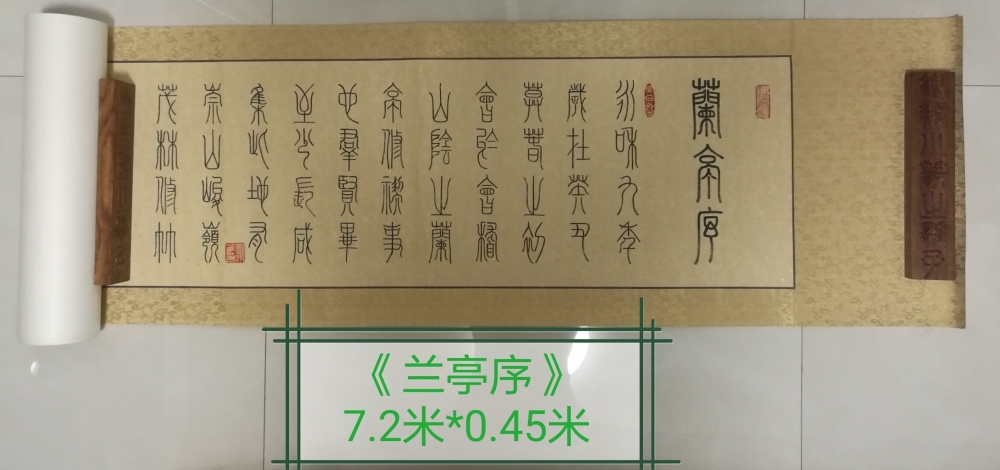 蘭亭序
永和九年
歲在癸丑
暮春之初
會於會稽
山陰之蘭
亭修禊事
也群賢畢
至少長咸
集此地有
崇山峻嶺
茂林修竹
《兰亭序》
7.2米*0.45米